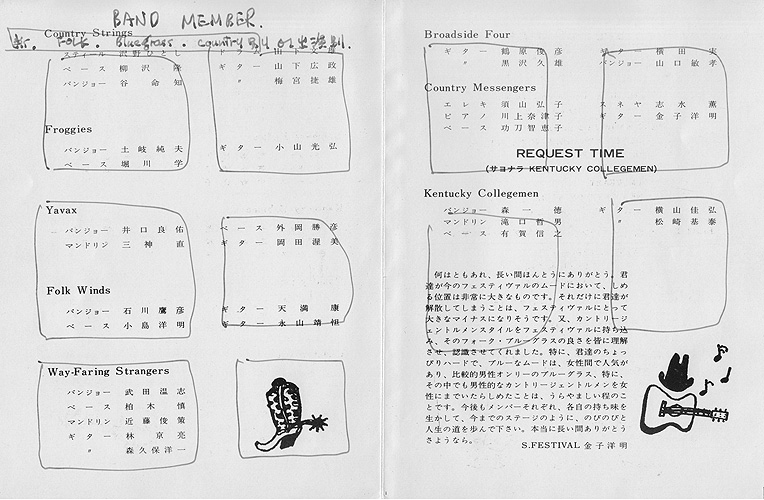 BAND MEMBER.
Country Strings
FOLK. Bluegrass. country
スティール 沢野ひとし
ベース 柳沢 隆
バンジョー 谷 命知
ギター 山下広政
〃 梅宮捷雄
Froggies
バンジョー 土岐純夫
ベース 堀川 学
ギター 小山光弘
Yavax
バンジョー 井口良佑
マンドリン 三神 直
ベース 外岡勝彦
ギター 岡田渥美
Folk Winds
バンジョー 石川鷹彦
ベース 小島洋明
ギター 天満 康
ギター 永山靖恒
Way-Faring Strangers
バンジョー 武田温志
ベース 柏木 慎
マンドリン 近藤俊策
ギター 林 京亮
〃 森久保洋一
Broadside Four
ギター 鶴原俊彦
〃 黒沢久雄
ギター 横田 実
バンジョー 山口敏孝
Country Messengers
エレキ 須山弘子
ピアノ 川上奈津子
ベース 功刀智恵子
スネヤ 志水 薫
ギター 金子洋明
REQUEST TIME
(サヨナラ KENTUCKY COLLEGEMEN)
Kentucky Collegemen
バンジョー 森 一徳
マンドリン 滝口哲男
ベース 有賀信之
ギター 横山佳弘
〃 松崎基泰
何はともあれ、長い間ほんとうにありがとう。君
達が今のフェスティヴァルのムードにおいて、しめ
る位置は非常に大きなものです。それだけに君達が
解散してしまうことは、フェスティヴァルにとって
大きなマイナスになりそうです。又、カントリージ
ェントルメンスタイルをフェスティヴァルに持ち込
み、そのフォーク・ブルーグラスの良さを皆に理解
させ、認識させてくれました。特に、君達のちょっ
ぴりハードで、ブルーなムードは、女性間で人気が
あり、比較的男性オンリーのブルーグラス、特に、
その中でも男性的なカントリージェントルメンを女
性にまでいたらしめたことは、うらやましい程のこ
とです。今後もメンバーそれぞれ、各自の持ち味を
生かして、今までのステージのように、のびのびと
人生の道を歩んで下さい。本当に長い間ありがとう
さようなら。
S.FESTIVAL 金子洋明